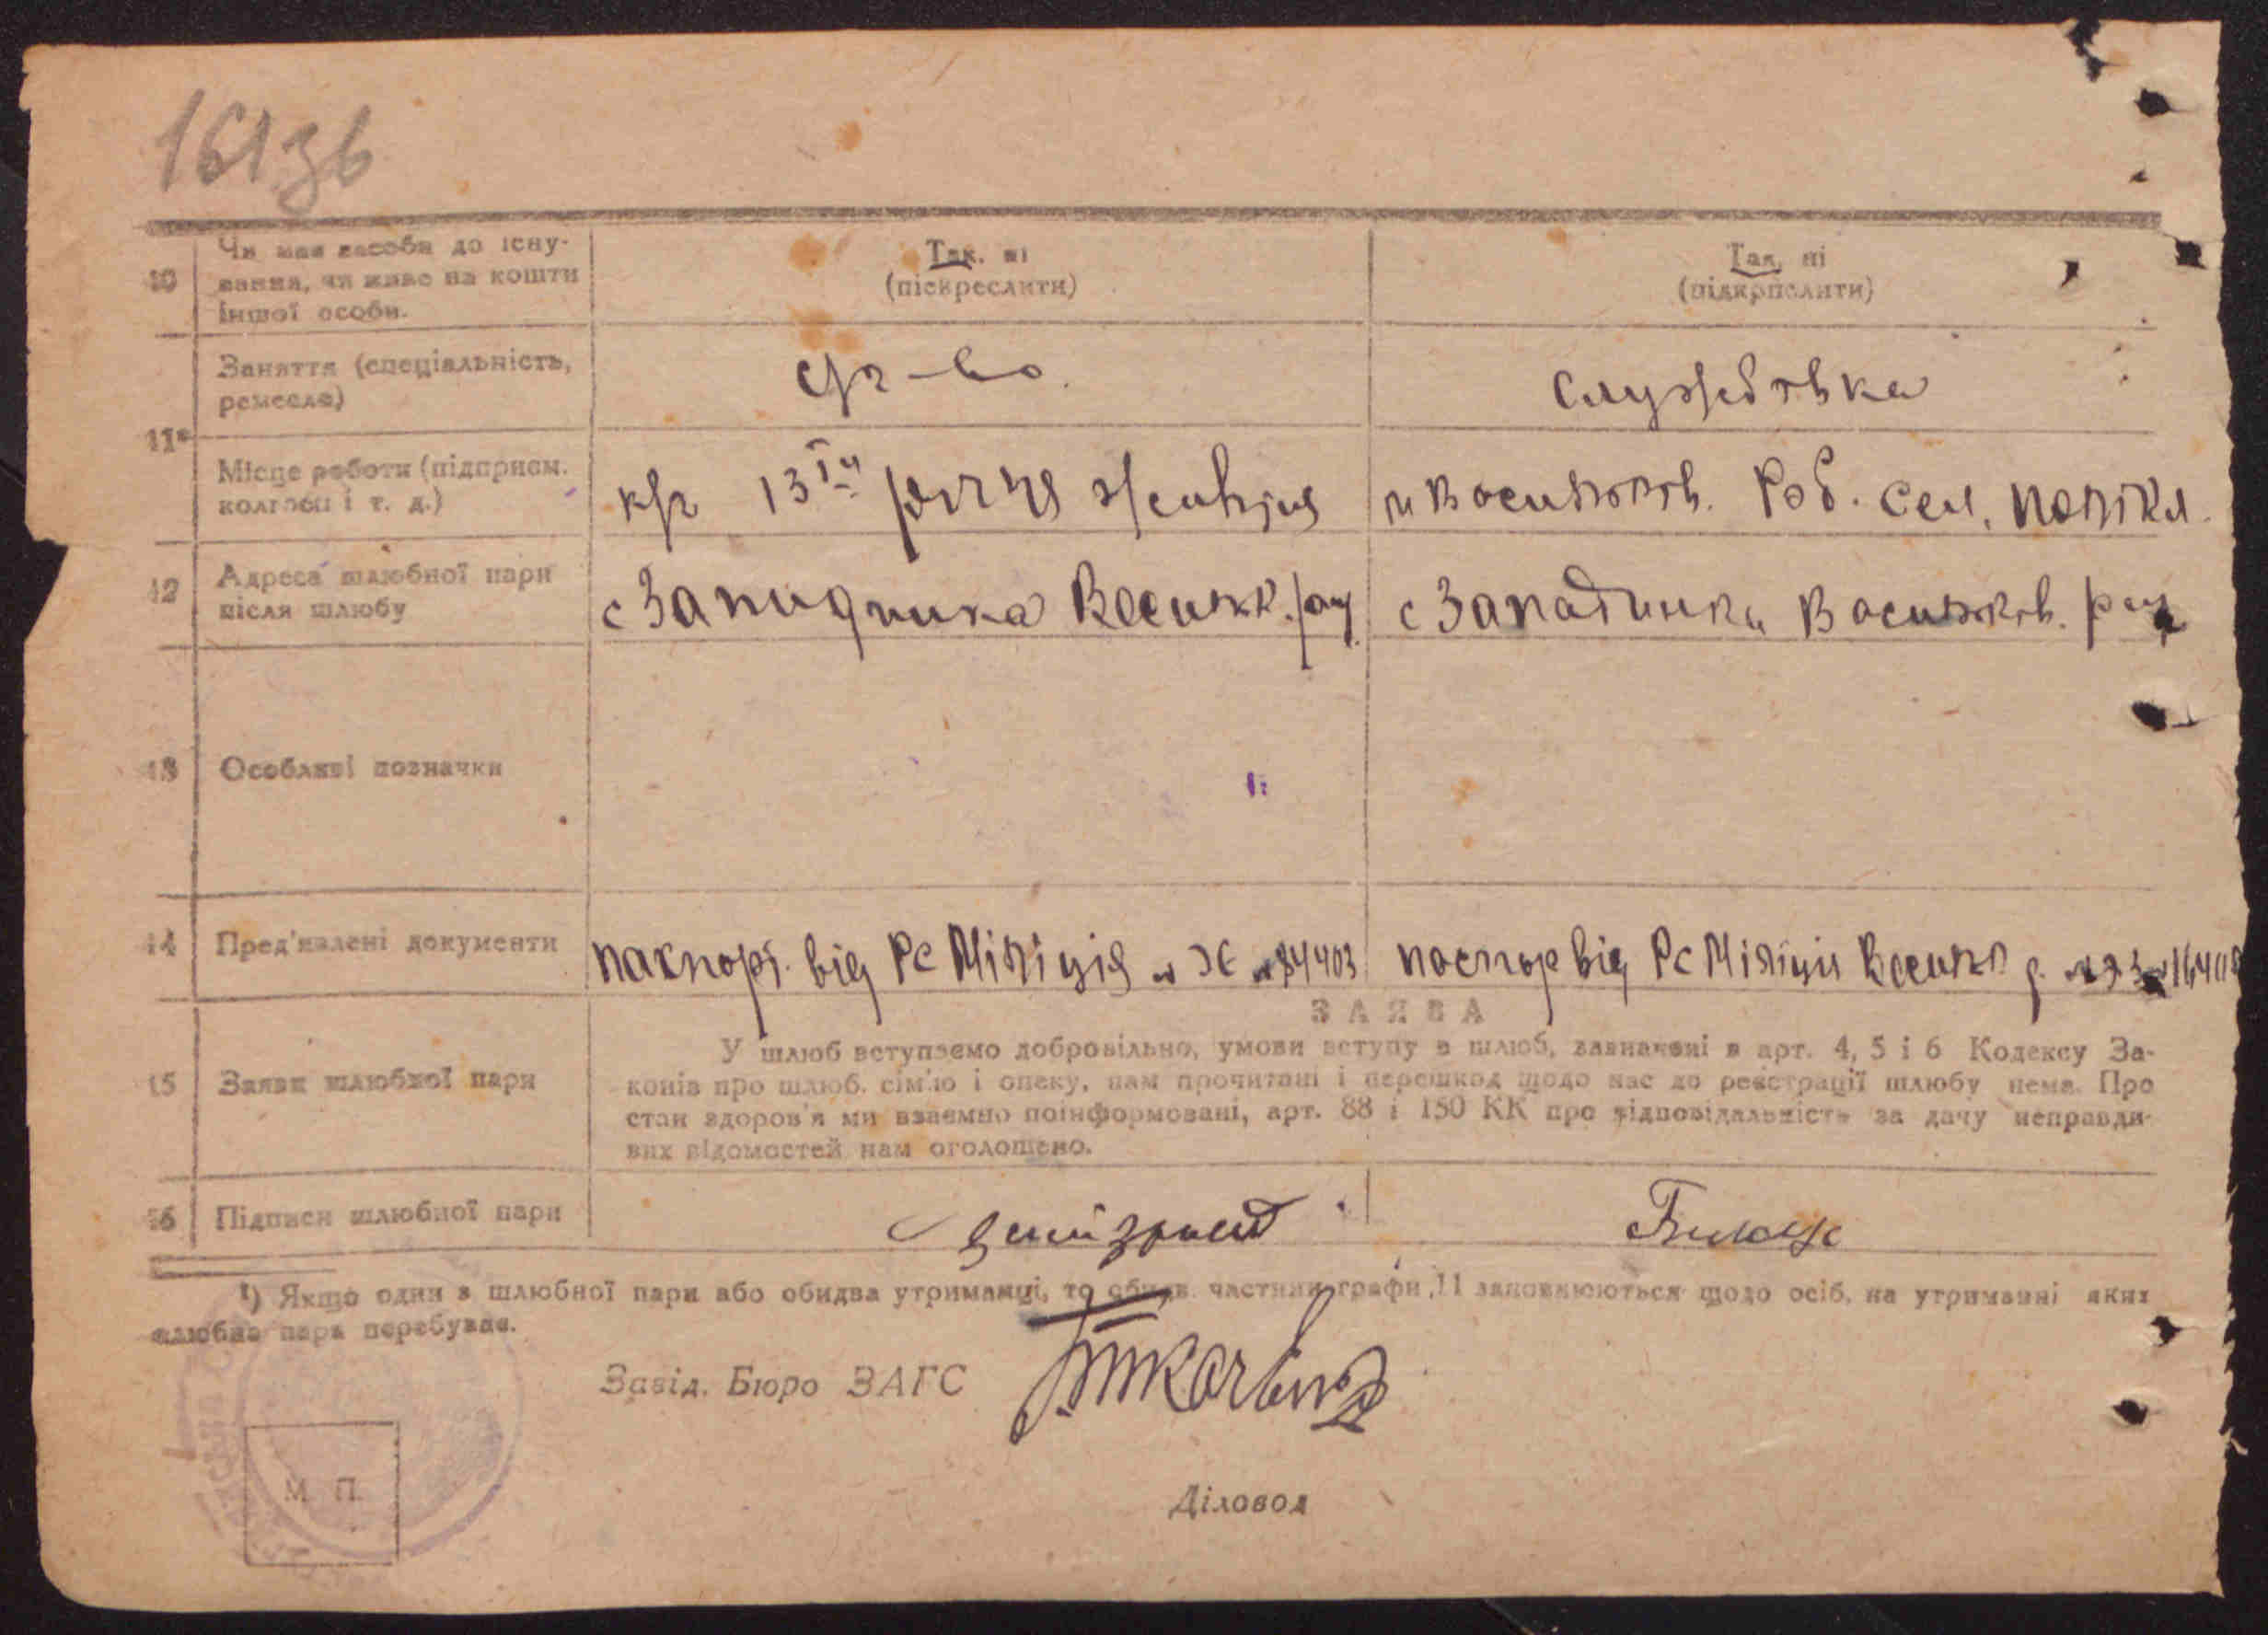 161зв
10
Чи має засоби до існу-
вання, чи живе на кошти
іншої особи.
Так, ні
(підкреслити)
Так, ні
(підкреслити)
11*
Заняття (спеціальність,
ремесло)
с/г-во.
Службовка
Місце роботи (підприєм.
колгосп і т. д.)
к/г 13 річчя Жовтня
м Васильков. Роб. Сел.
12
Адреса шлюбної пари
після шлюбу
с Западинка Васильк. рай
с Западинка Васильков. рай
13
Особливі позначки
14
Пред'явлені документи
паспорт. від РС Міліція № ЭЄ № 84403
паспор від РС Міліції Васильк
15
Заява шлюбної пари
ЗАЯВА
У шлюб вступаємо добровільно, умови вступу в шлюб, зазначені в арт. 4, 5 і 6 Кодексу За-
конів про шлюб, сім'ю і опеку, нам прочитані і перешкод щодо нас до реєстрації шлюбу нема. Про
стан здоров'я ми взаємно поінформовані, арт. 88 і 150 КК про відповідальність за дачу неправди-
вих відомостей нам оголошено.
16
Підписи шлюбної пари
¹) Якщо один з шлюбної пари або обидва утриманці, то обидв. частини графи 11 заповнюються щодо осіб, на утриманні яких
шлюбна пара перебуває.
Завід. Бюро ЗАГС
М. П.
Діловод